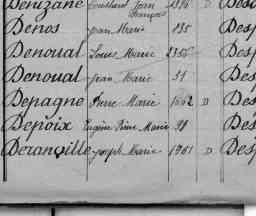 Denizane Guillard Jean François 1396 D
Denos Jean Marie 135 Desp
Denoual Louis Marie 2355 Desp
Denoual Jean Marie 51 Desp
Depagne Pierre Marie 1662 D Desp
Depoix Eugène Pierre Marie 98 Des
Deranville Joseph Marie 1961 D Desp